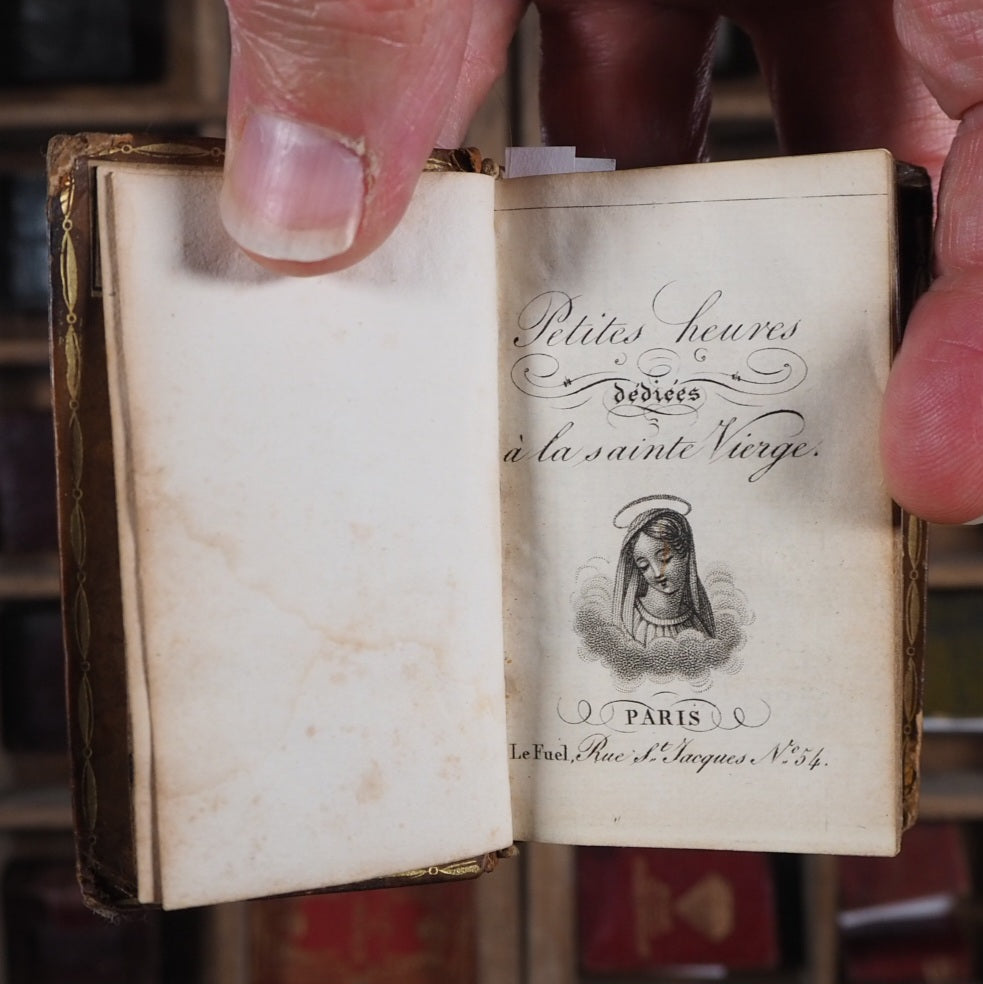 Petites heures
dédiées
à la sainte Vierge.
PARIS
Le Fuel, Rue St. Jacques No. 54.